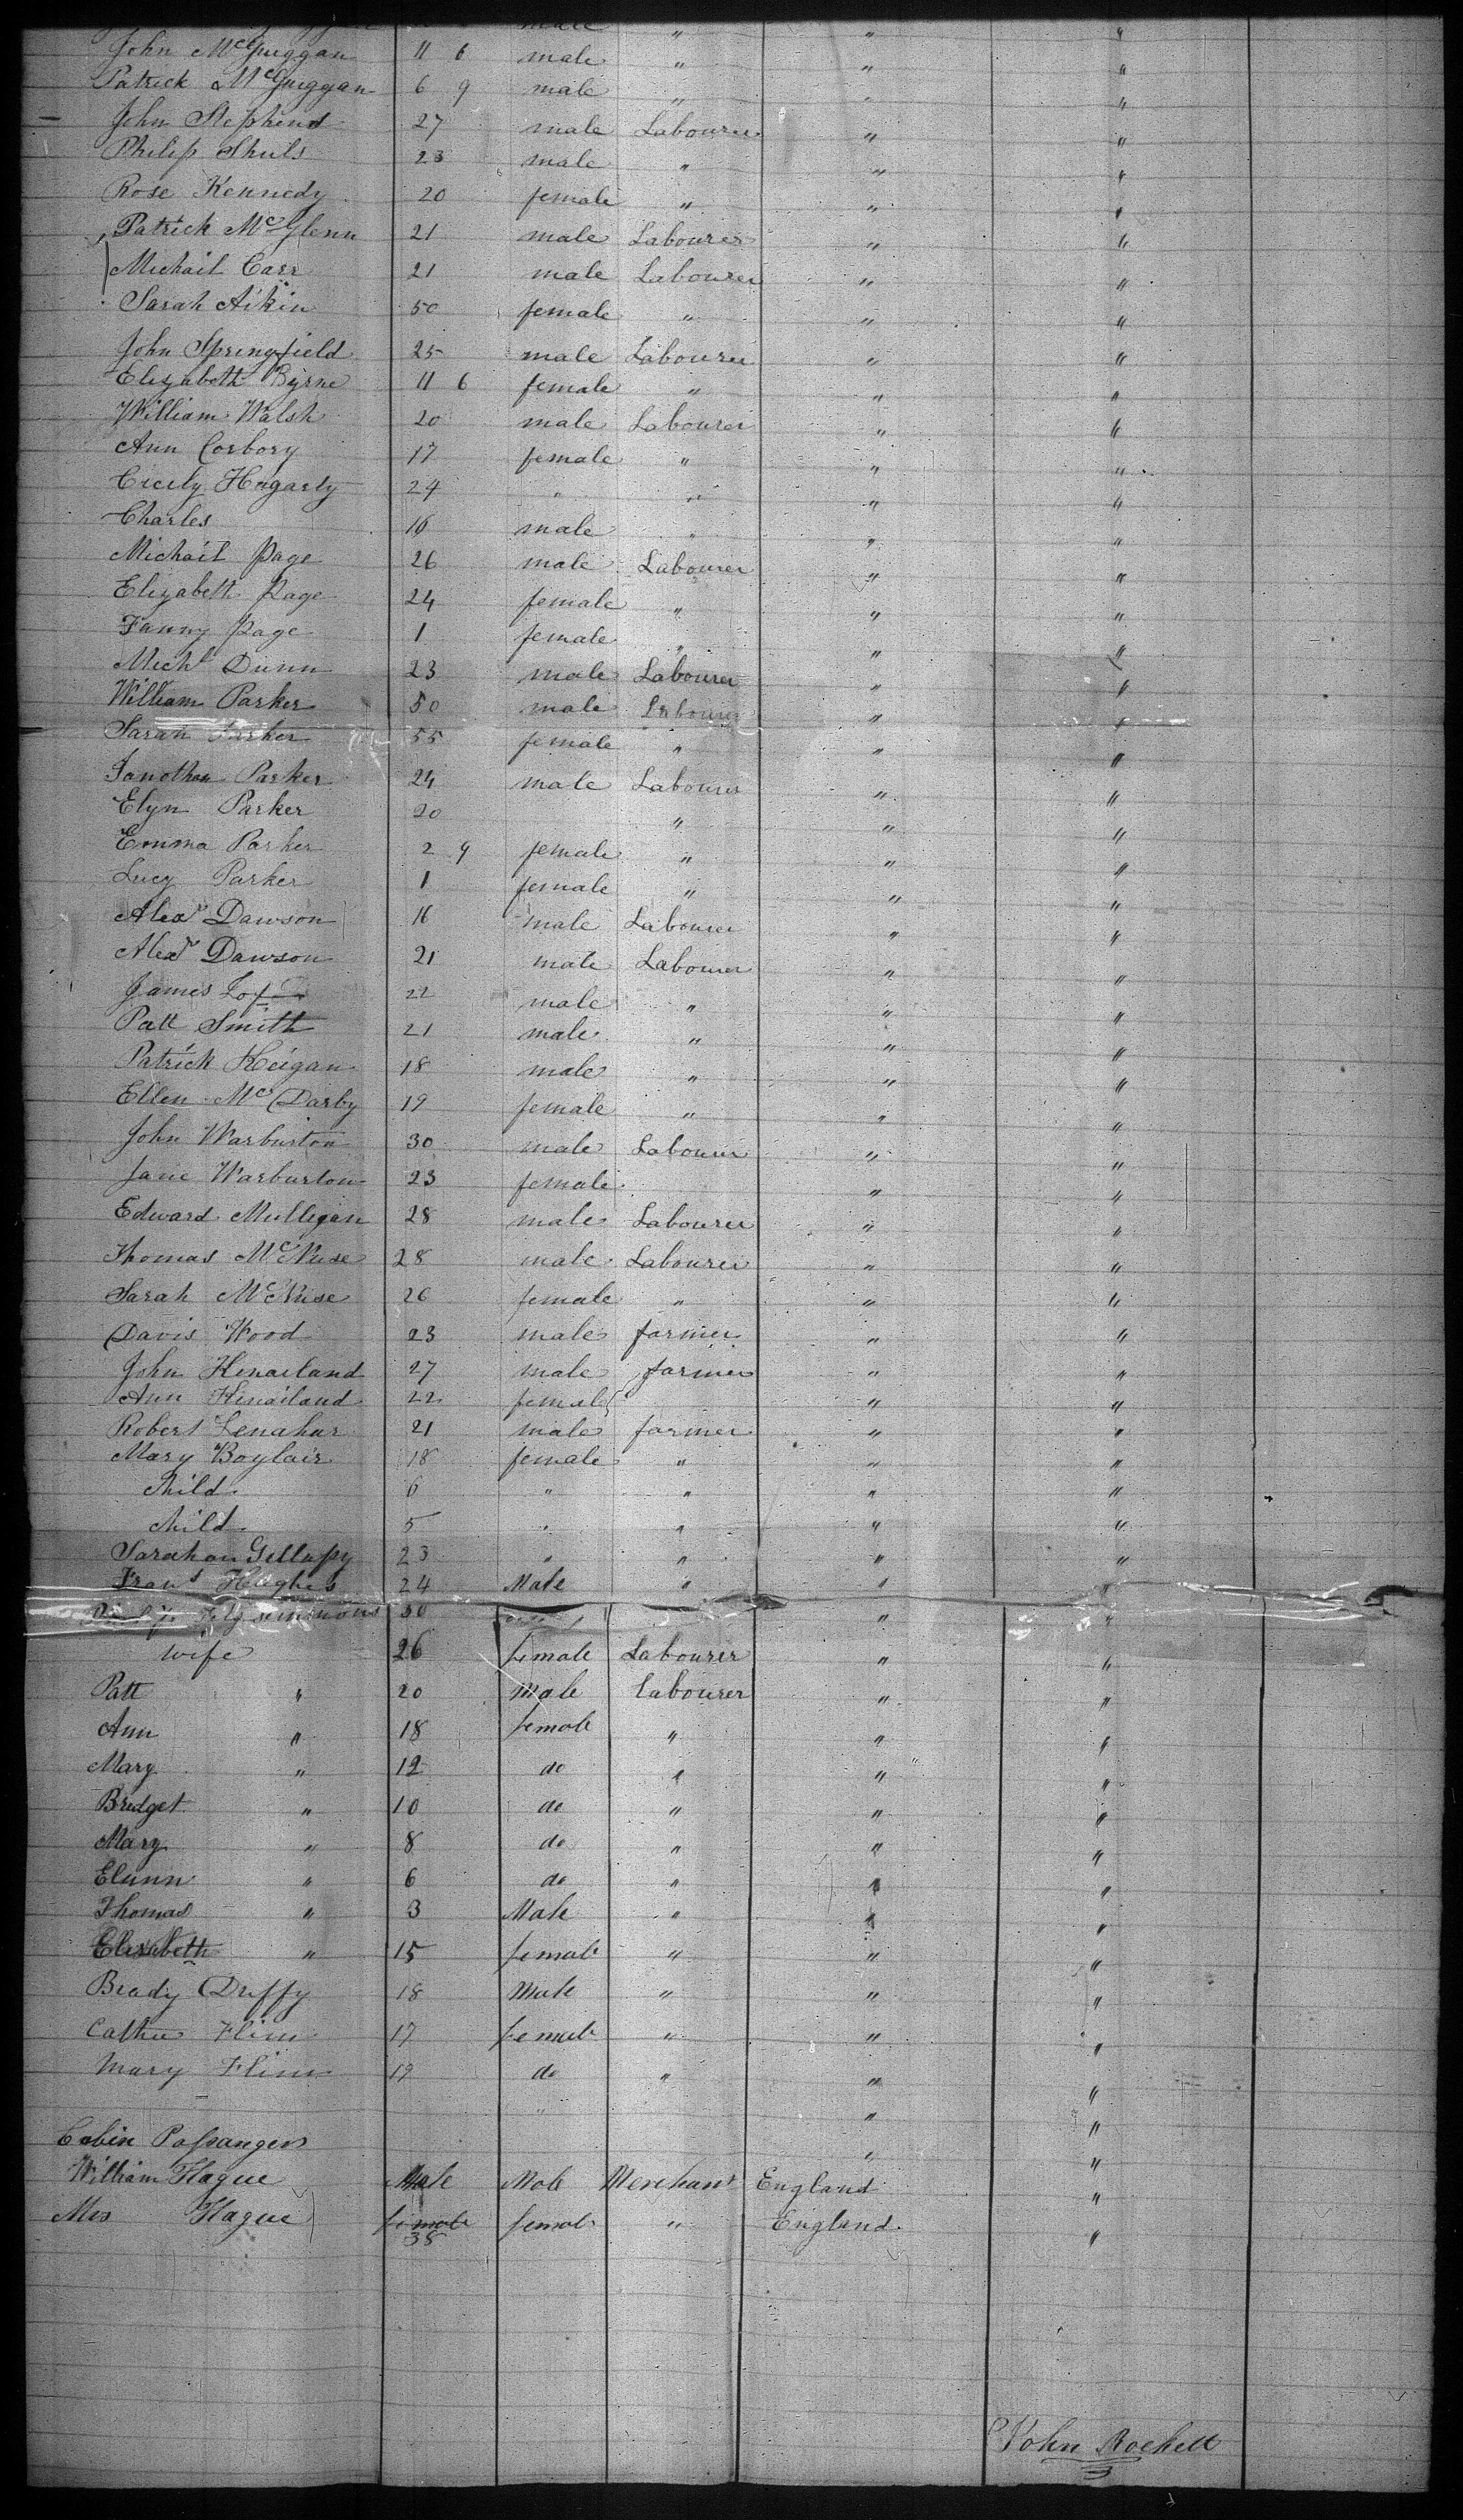 male " " "
John McGuggan 11 6 male " " "
Patrick McGuiggan 6 9 male " " "
John Stephend 27 male Labourer " "
Philip Shuls 23 male " " "
Rose Kennedy 20 female " " "
Patrick McGlenn 21 male Labourer " "
Michail Carr 21 male Labourer " "
Sarah Aikin 50 female " " "
John Springfield 25 male Labourer " "
Elizabeth Byrne 11 6 female " " "
William Walsh 20 male Labourer " "
Ann Corbory 17 female " " "
Cicily Hagarty 24 " " " "
Charles 16 male " " "
Michail Page 26 male Labourer " "
Elizabeth Page 24 female " " "
Fanny Page 1 female " " "
Michl Dunn 23 male Labourer " "
William Parker 50 male Labourer " "
Sarah Parker 55 female " " "
Jonothan Parker 24 male Labourer " "
Elyn Parker 20 " " "
Emma Parker 2 9 female " " "
Lucy Parker 1 female " " "
Alexr Dawson 16 male Labourer " "
Alexr Dawson 21 male Labourer " "
James 22 male " " "
Patt Smith 21 male " " "
Patrick Keigan 18 male " " "
Ellen McDarby 19 female " " "
John Warburton 30 male Labourer " "
Jane Warburton 23 female " "
Edward Mulligan 28 male Labourer " "
Thomas McNuse 28 male Labourer " "
Sarah McNuse 26 female " " "
Davis Wood 23 male farmer " "
John Kinailand 27 male farmer " "
Ann Kinailand 22 female " "
Robert Lenahar 21 male farmer " "
Mary Boylair 18 female " " "
Child 6 " " " "
child 5 " " " "
Sarahan Gillaspy 23 " " " "
Frans Hughes 24 Male " " "
Fitzsimmons 30 " "
wife 26 female Labourer " "
Patt " 20 Male Labourer " "
Ann " 18 female " " "
Mary " 12 do " " "
Bridget " 10 do " " "
Mary " 8 do " " "
Elunn " 6 do " " "
Thomas " 3 Male " " "
Elisabeth " 15 female " " "
Brady Duffy 18 Male " " "
Cathe Flinn 17 female " " "
Mary Flinn 19 do " " "
" " "
Cabin Passangers " "
William Hague Male Male Merchant England "
Mrs Hague female female " England "
38
John Rockett